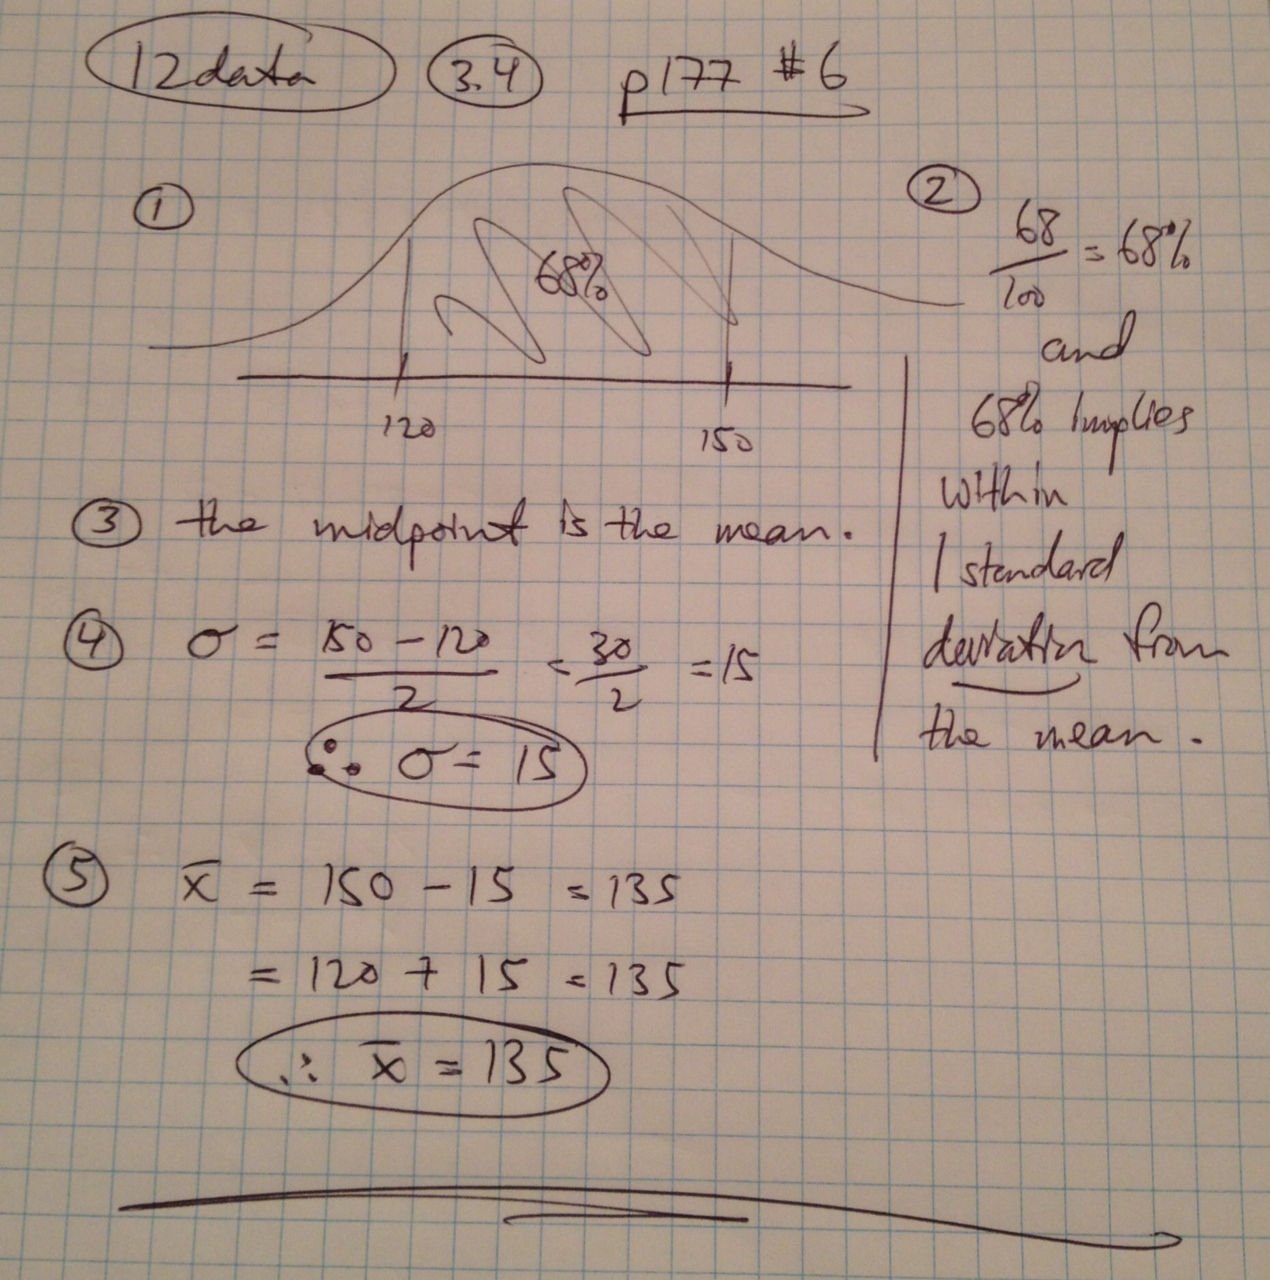 12data 3.4 p177 #6
①
68%
120 150
②
68/100 = 68%
and
68% implies
within
1 standard
deviation from
the mean.
③ the midpoint is the mean.
④ σ = (150 - 120)/2 = 30/2 = 15
∴ σ = 15
⑤ x̄ = 150 - 15 = 135
= 120 + 15 = 135
∴ x̄ = 135